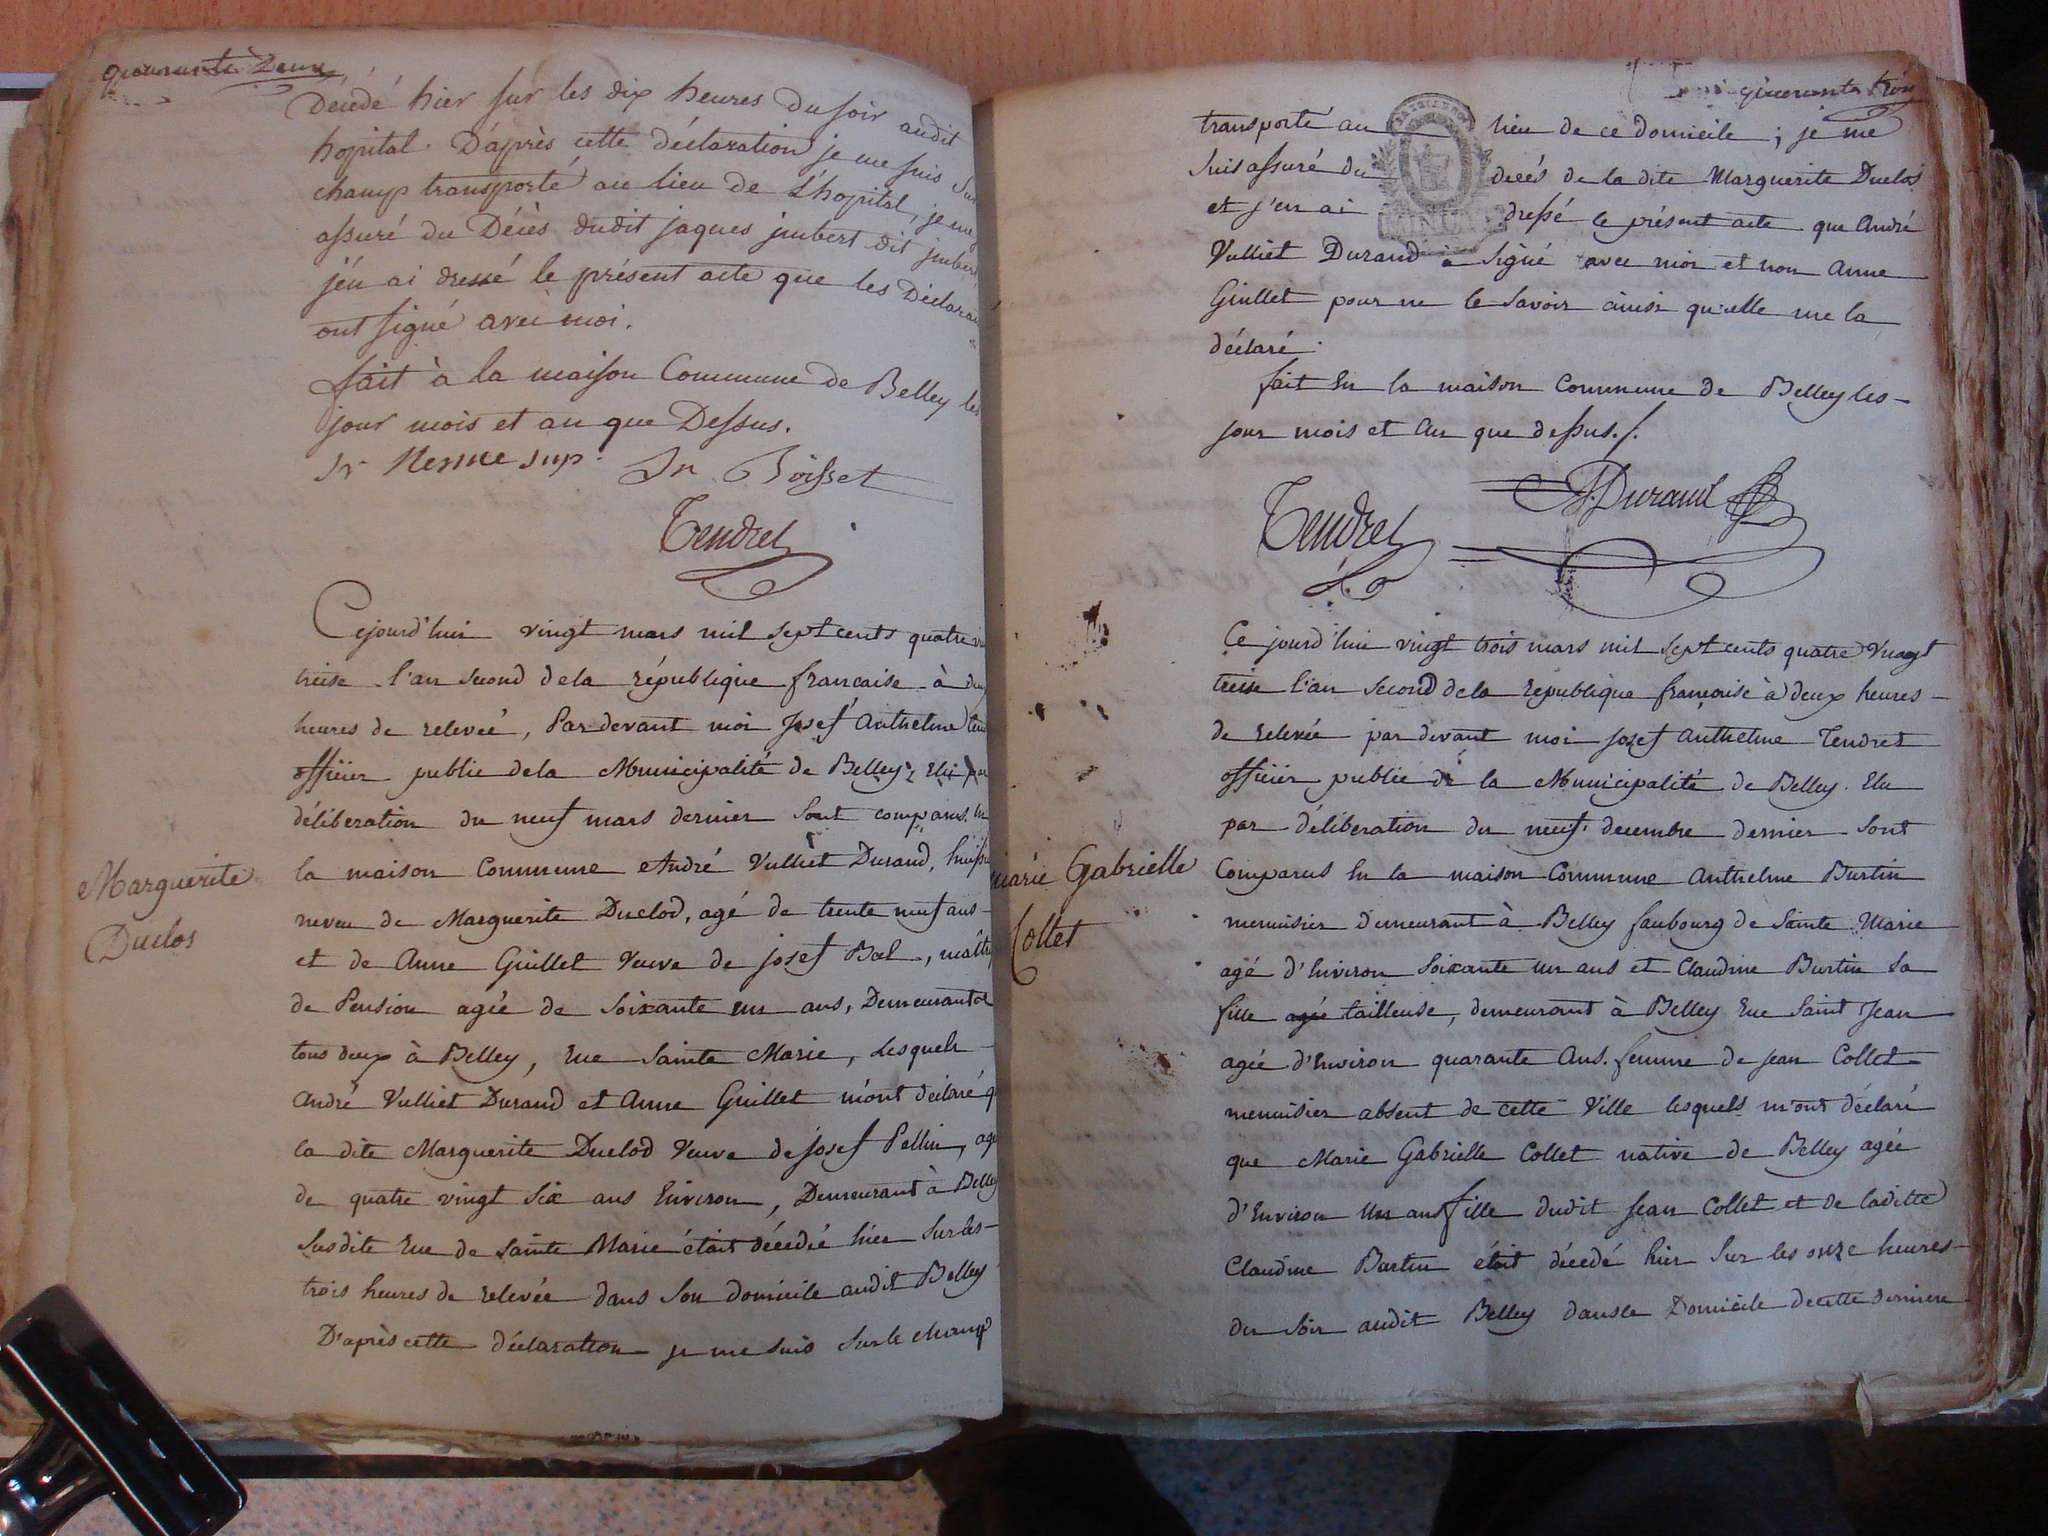 quarante Deux
Décédé hier sur les dix heures du soir audit
hopital. D'après cette déclaration je me suis sur
champ transporté au lieu de L'hopital, je me
assuré du Décès dudit jaques jmbert dit jmbert
j'en ai dressé le présent acte que les Déclaran
ont signé avec moi.
fait à la maison Commune de Belley les
jour mois et an que Dessus.
Sr Nesme sup. Sr Boisset
Tendret
Cejourd'hui vingt mars mil sept cents quatre vin
treise l'an second dela république francaise à deux
heures de relevée, Par devant moi Josef Anthelme Ten
officier public dela Municipalité de Belley, Elu par
déliberation du neuf mars dernier sont comparus. en
la maison Commune André Vulliet Durand, huissi
neveu de Marguerite Duclod, agé de trente neuf ans
et de Anne Guillet Veuve de josef Bal, maître
de Pension agée de soixante un ans, Demeurant
tous deux à Belley, rue Sainte Marie, Lesquels
André Vulliet Durand et Anne Guillet m'ont déclaré q
la dite Marguerite Duclod Veuve de josef Pellin, agé
de quatre vingt six ans Environ, Demeurant à Belley
susdite rue de Sainte Marie était décédée hier sur les
trois heures de relevée dans son domicile audit Belley
D'après cette déclaration je me suis sur le champ
Marguerite
Duclos
quarante trois
transporté au lieu de ce domicile ; je me
suis assuré du decés de la dite Marguerite Duclos
et j'en ai dressé le présent acte que André
Vulliet Durand a signé avec moi et non Anne
Guillet pour ne le savoir ainsi qu'elle me la
déclaré.
fait En la maison Commune de Belley les
jour mois et an que dessus./.
Tendret A. Durand
Ce jourd'hui vingt trois mars mil sept cents quatre Vingt
treise l'an second dela république françoise à deux heures
de relevée par devant moi josef anthelme Tendret
officier public de la Municipalité de Belley. Elu
par déliberation du neuf decembre dernier sont
Comparus En la maison Commune Anthelme Burtin
menuisier demeurant à Belley faubourg de Sainte Marie
agé d'Environ soixante un ans et Claudine Burtin sa
fille agée tailleuse, demeurant à Belley rue Saint Jean
agée d'Environ quarante Ans. femme de jean Collet
menuisier absent de cette Ville lesquels m'ont déclaré
que Marie Gabrielle Collet native de Belley agée
d'Environ Un ans fille dudit Jean Collet et de laditte
Claudine Burtin était décedé hier sur les onze heures
du soir audit Belley dans le Domicile de cette derniere
marie Gabrielle
Collet